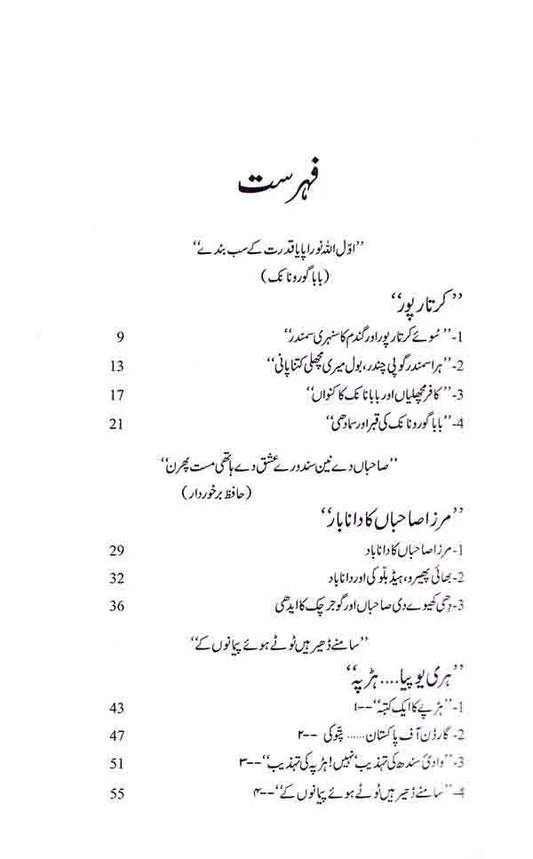 فہرست
”اوّل اللہ نور اپایا قدرت کے سب بندے“
(بابا گورونانک)
”کرتارپور“
1- ”سُوئے کرتارپور اور گندم کا سنہری سمندر“ 9
2- ”ہرا سمندر گوپی چندر، بول میری مچھلی کتنا پانی“ 13
3- ”کافر مچھلیاں اور بابا نانک کا کنواں“ 17
4- ”بابا گورونانک کی قبر اور سمادھی“ 21
”صاحباں دے نین سندورے عشق دے ہاتھی مست پھرن“
(حافظ برخوردار)
”مرزا صاحباں کا دانابار“
1- مرزا صاحباں کا داناباد 29
2- بھائی پھیرو، ہیڈ بلّوکی اور داناباد 32
3- دھی کھیوے دی صاحباں اور گوجر چک کا ایدھی 36
”سامنے ڈھیر ہیں ٹوٹے ہوئے پیمانوں کے“
”ہری یوپیا .... ہڑپہ“
1- ”ہڑپے کا ایک کتبہ“ --۱ 43
2- گارڈن آف پاکستان ...... پتّوکی --۲ 47
3- ”وادیٔ سندھ کی تہذیب‘ نہیں! ہڑپہ کی تہذیب“ --۳ 51
4- ”سامنے ڈھیر ہیں ٹوٹے ہوئے پیمانوں کے“ --۴ 55